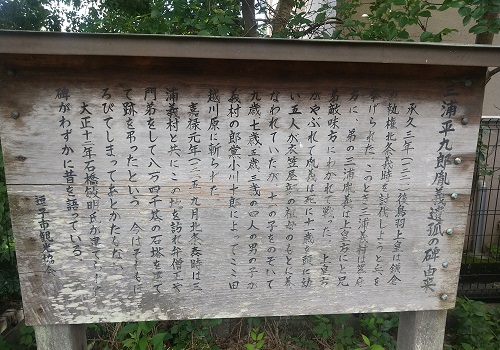 三浦平九郎胤義遺孤の碑由来
承久三年(一二二一)後鳥羽上皇は鎌倉
の執権北条義時を討伐しようと兵を
挙げられた。このとき三浦義村は幕府
方に、弟の三浦胤義は上皇方にと兄
弟敵味方にわかれて戦った。上皇方
がやぶれて胤義は死に、
い五人が矢部屋部の祖母のもとに養
なわれていたが、十一の子をのぞいて
九歳七歳五歳三歳の四人の男の子が
義村の郎党小川十郎によってここ田
越川原に斬られた。
嘉禄元年(一二二五)九月北条泰時は三
浦義村と共にこの地を訪れ弁僧正や
門弟をして八万四千基の石塔を建て
て跡を弔ったという。今はそれもほ
ろびてしまってあとかたもない。
大正十一年石橋
碑がわずかに昔を語っている。
逗子市観光協会